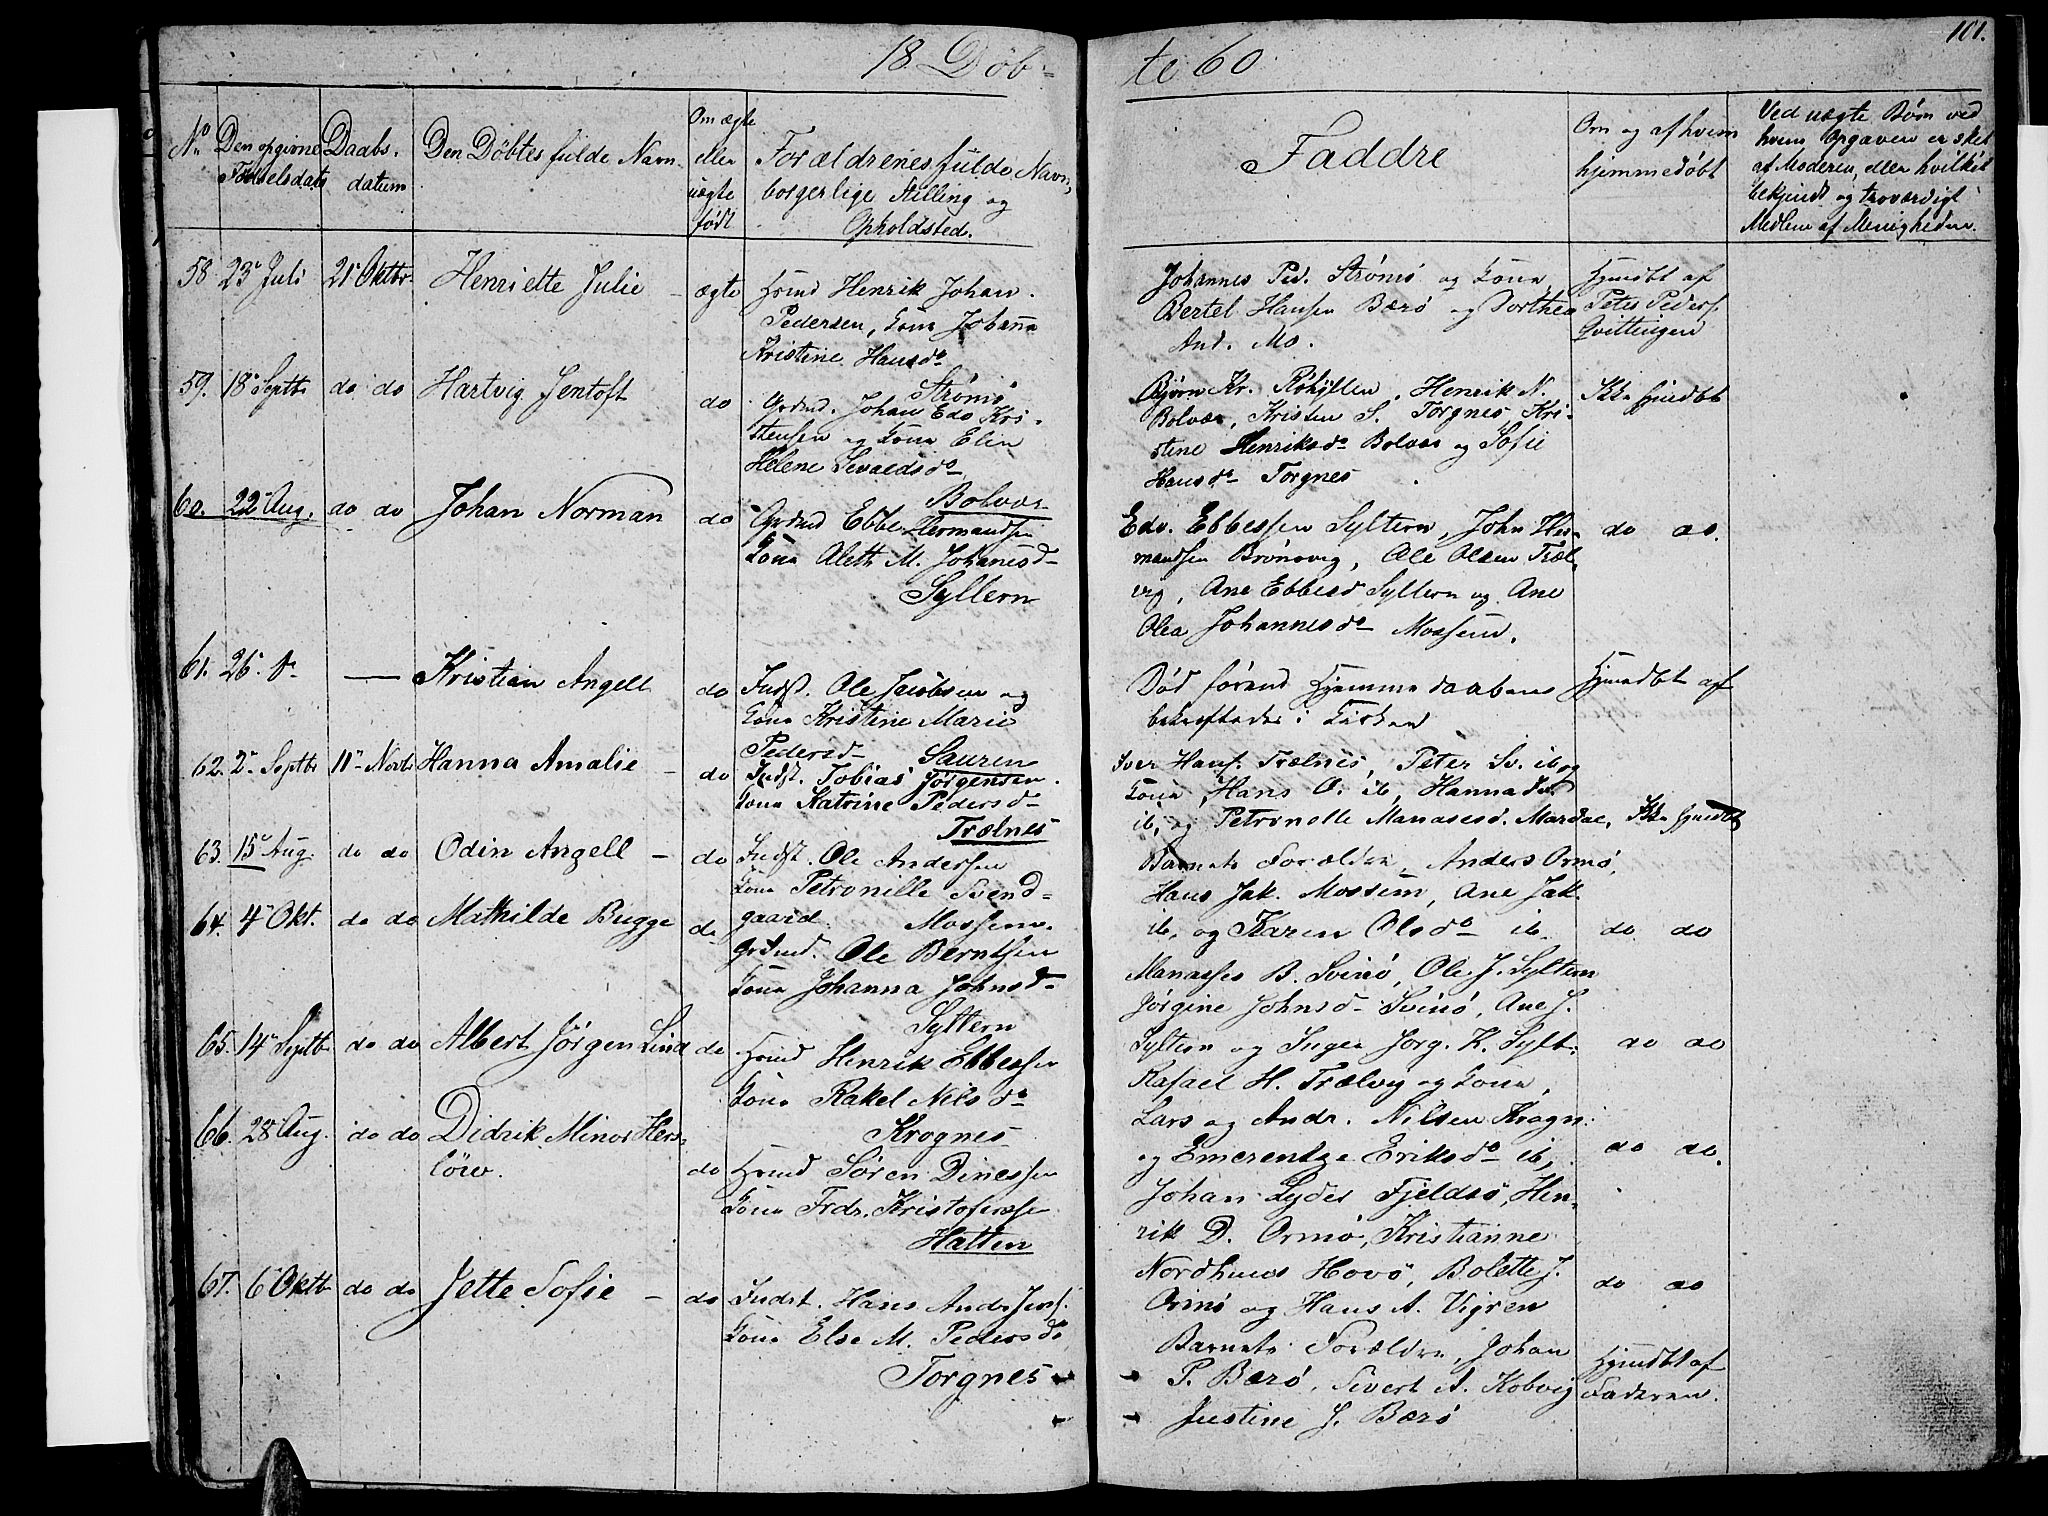 18 Döb-
te 60
101.
No
Den opgivne
Fødselsdato
Daabs-
datum
Den Döbtes fulde Navn
Om ægte
eller
uægte
født
Forældrenes fulde Navn,
borgerlige Stilling og
Opholdsted.
Faddre
Om og af hvem
hjemmedøbt
Ved uægte Børn ved
hvem Opgaven er sket
af Moderen, eller hvilket
bekjendt og troværdigt
Medlem af Menigheden.
58 23 Juli 21 Oktbr. Henriette Julie - ægte
Henrik Johan
Pedersen, Kona Johanna
Kristine Hansd.
Strömö
Johannes Ped. Strømö og Kona,
Bertel Hansen Bærö og Dorthea
And. Mo.
Hjmdbt af
Peter Peders.
Qvittingen
59. 18 Septb. do do Hartvig Jentoft do
Johan Edv. Kri-
stensen og Kona Elin
Helene Sevaldsd.
Bolvær
Bjørn Kr. , Henrik N.
Bolvær, Kristen S. Torgnes, Kri-
stine Henriksd. Bolvær og Sofie
Hansd. Torgnes
Ikke hjmdbt
60. 22 Aug. do do Johan Norman do
Ebbe Hermandsen
Kona Aleth M. Johanesd
Syltern
Edv. Ebbessen Syltern, John Her-
mandsen Brönövig, Ole Olsen Træl-
vig, Ane Ebbesd Syltern og Ane
Olea Johannesd. Mossem.
do do.
61. 26. do — Kristian Angell do
Indst. Ole Jacobsen og
Kona Kristine Marie
Pedersd. Sauren
Död förend Hjemmedaabens
bekræftedes i Kirken
Hjmdbt af
62. 2 Septb 11 Novb Hanna Amalie - do
Indst. Tobias Jörgensen.
Kona Katrine Pedersd.
Trælnes
Iver Hans. Trælnes, Peter Sv. ib. og
Kona, Hans O. ib, Hanna
ib, og Petronelle Manasesd. Mardal,
Ikke hjmdbt
63. 15 Aug. do do Odin Angell - do
Indst. Ole Andersen
Kona Petronille Svend-
gaard. Mossem.
Barnets Forældre, Anders Ormö,
Hans Jak. Mossem, Ane Jak.
ib, og Karen Olsd. ib.
do do
64. 4 Okt. do do Mathilde Bugge do
Ole Berntsen
Kona Johanna Johnsd.
Syltern
Manasses B. Svinö, Ole J. Syltern
Jørgine Johnsd. Svinö, Ane J.
Syltern og Inger Jørg. K. Sylt.
do do
65. 14 Septb do do Albert Jörgen Lind do
Henrik Ebbessen
Kona Rakel Nilsd.
Krognes
Rafael H. Trælvig og Kona,
Lars og Andr. Nilsen Krogn.
og Emerentze Eriksd. ib,
do do.
66. 28 Aug. do do Didrik Minor Hers-
löw. do
Sören Dinessen
Kona Frdr. Kristofersen
Hatten
Johan Lyder Fjeldsö, Hen-
rik D. Ormö, Kristianne
Nordhuus Hovö, Bolette J.
Ormö og Hans A. Vigren
do do
67. 6 Oktb do do Jette Sofie - do
Indst. Hans Anders Jens.
Kona Else M. Pedersd
Torgnes
Barnets Forældre, Johan
P. Bærö, Sivert A. Hobvig
Justine J. Bærö
Hjmdbt af
Faderen.